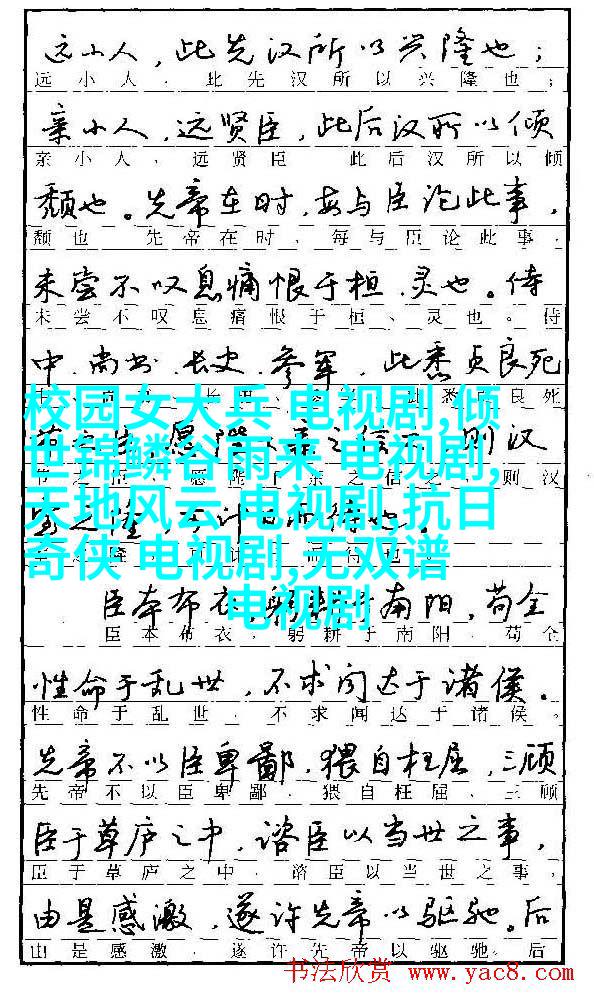 远小人，此先汉所以兴隆也；
远小人，此先汉所以兴隆也；
亲小人，远贤臣，此后汉所以倾
亲小人，远贤臣 此后汉所以倾
颓也。先帝在时，每与臣论此事，
颓也 先帝在时，每与臣论此事，
未尝不叹息痛恨于桓、灵也。侍
未尝不叹息痛恨于桓、灵也。侍
中、尚书、长史、参军，此悉贞良死
悉 良死
校园女大兵 电视剧,倾
世锦鳞谷雨来 电视剧,
天地风云 电视剧,抗日
奇侠 电视剧,无双谱
电视剧
愿陛 亲之信 则汉
节之臣，愿陛 亲之信之，则汉
室之隆，可计日而待也。
隆，可计 而待也。
臣本布衣，躬耕于南阳，苟全
臣本布衣，躬耕于南阳，苟全
性命于乱世，不求闻达于诸侯。
性命于乱世，不求闻达于诸侯。
先帝不以臣卑鄙，猥自枉屈，三顾
先帝不以臣卑鄙，猥自枉屈、三顾
臣于草庐之中，谘臣以当世之事，
臣于草庐之中，谘臣以当世之事，
由是感激，遂许先帝以驱驰。后
由是感激，遂许先帝以驱驰。后
书法欣赏 www.yac8.com